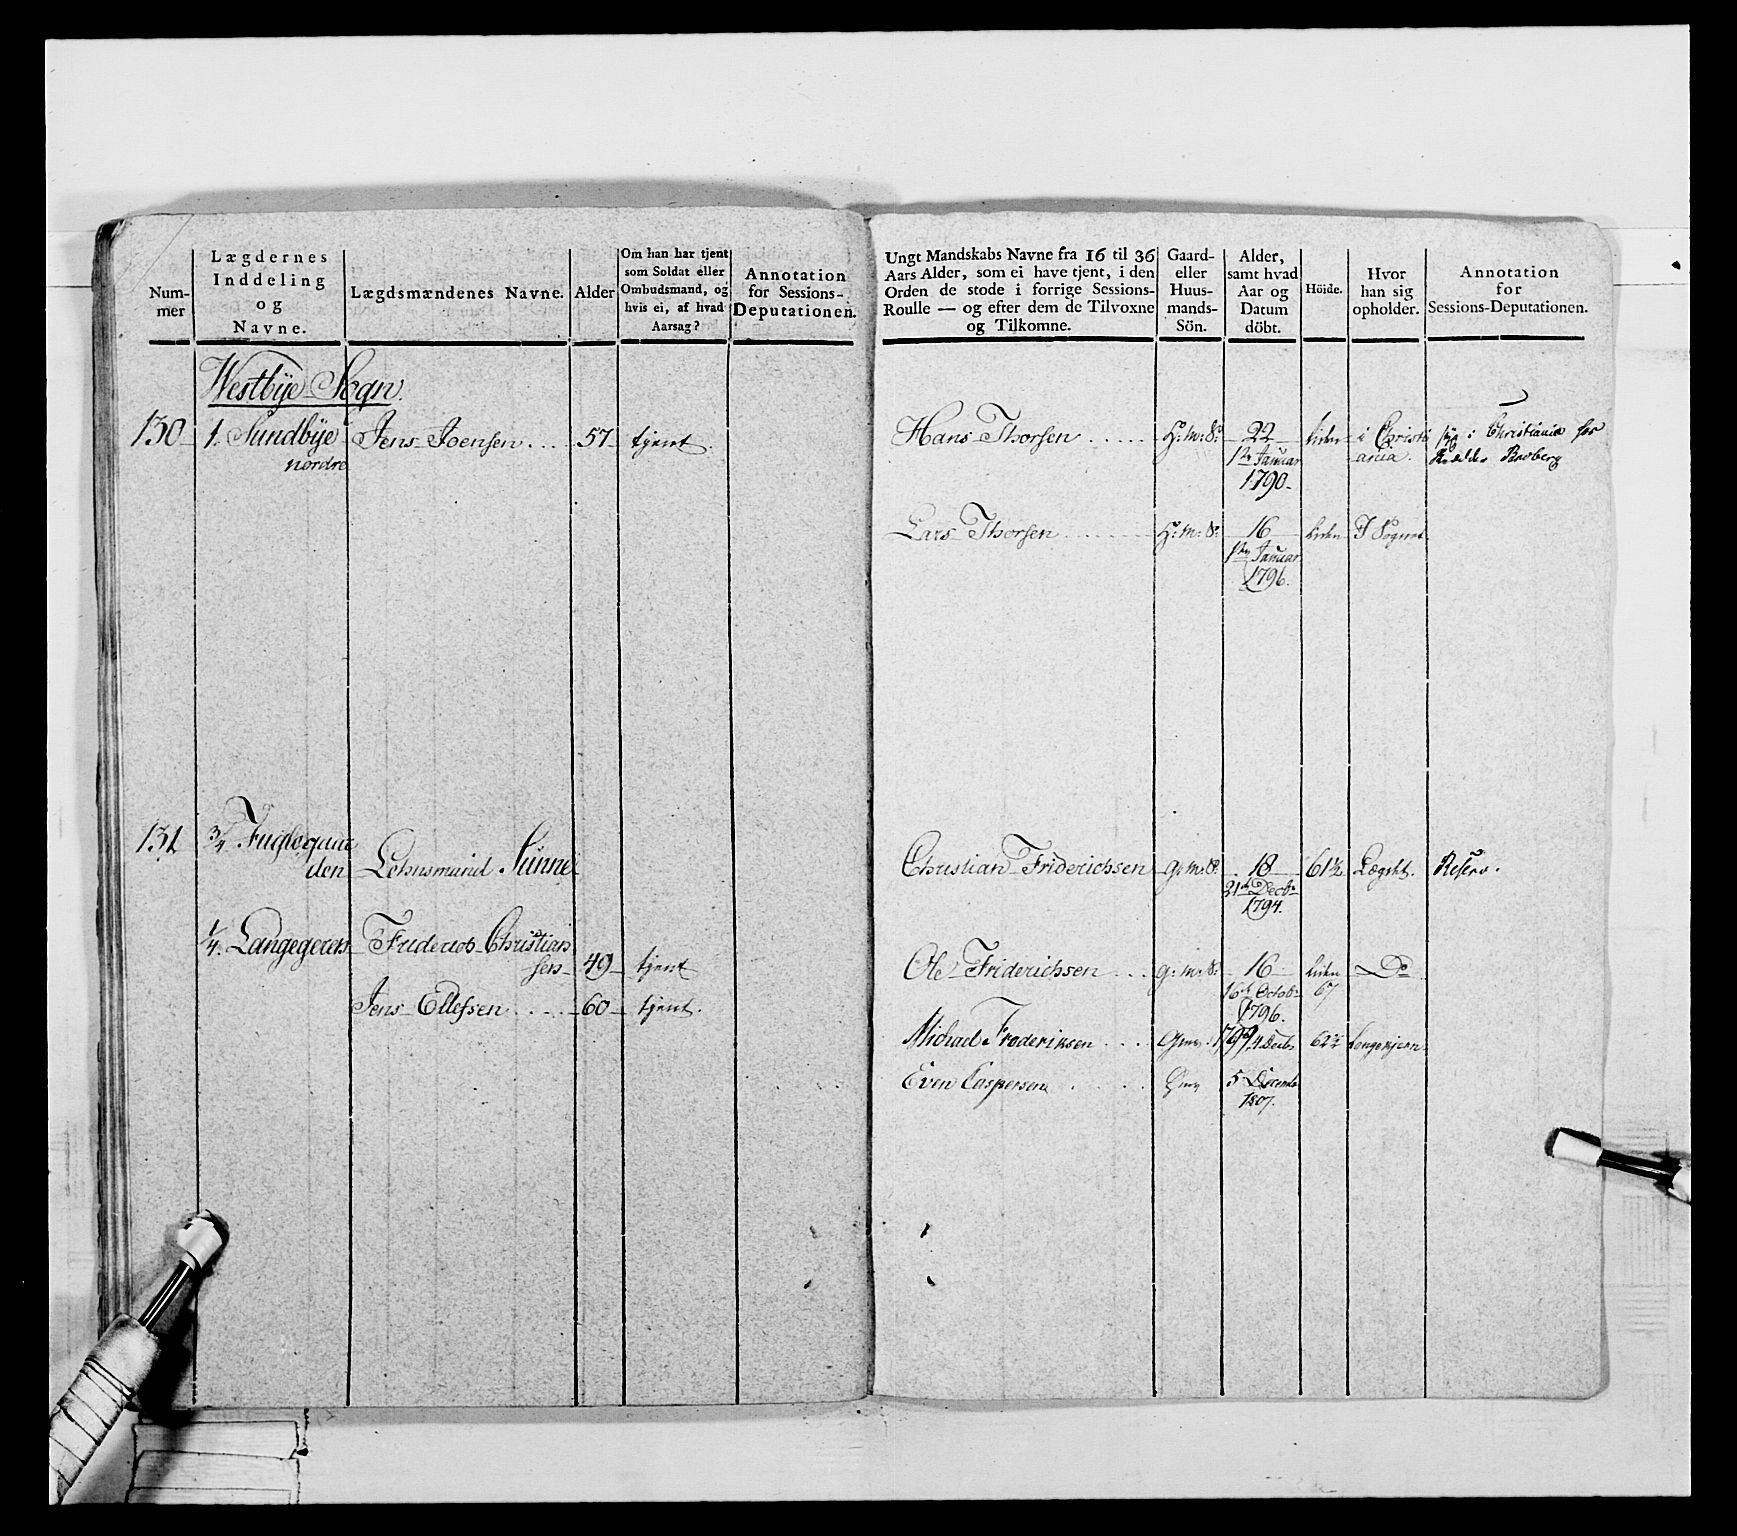 Num-
mer
Lægdernes
Inddeling
og
Navne.
Lægdsmændenes Navne.
Alder
Om han har tjent
som Soldat eller
Ombudsmand, og
hvis ei, af hvad
Aarsag?
Annotation
for Sessions-
Deputationen.
Westbÿe Sogn.
130
1. Sundbÿe
nordre
Jens Joensen
57
tjent.
131
3/4 Fuglegaar
den
Lehnsmand Sünne
1/4. Langegeren
Friderich Christian
sen
49
tjent
Jens Ellefsen
60
tjent.
Ungt Mandskabs Navne fra 16 til 36
Aars Alder, som ei have tjent, i den
Orden de stode i forrige Sessions-
Roulle — og efter dem de Tilvoxne
og Tilkomne.
Gaard-
eller
Huus-
mands-
Sön.
Alder,
samt hvad
Aar og
Datum
döbt.
Höide.
Hvor
han sig
opholder.
Annotation
for
Sessions-Deputationen.
Hans Thorsen
H: m: S:
22
1ste Januar
1790
liden
i Christi
ania.
syg i Christiania hos
Broberg
Lars Thorsen
H: m: S:
16
1ste Januar
1796.
liden
I Sognet
Christian Friderichsen
G: m: S:
18
21de Decbr
1794.
61½
Lægdet.
Reserv.
Ole Friderichsen
G: m: S:
16
16de Octob
1796.
liden
67
Do
Michael Frederiksen
Gmes
1799, 4 Decb
62½
Langekjern
Even Caspersen
Gmes
5 Decemb
1807.